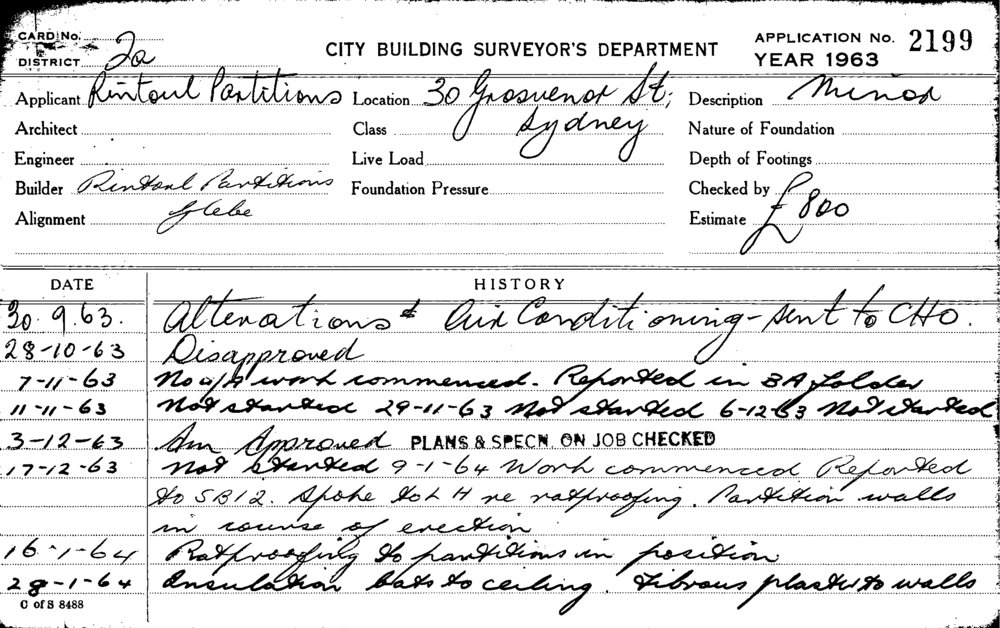 CARD No.
DISTRICT 2a
CITY BUILDING SURVEYOR'S DEPARTMENT
APPLICATION No. 2199
YEAR 1963
Applicant Rintoul Partitions Location 30 Grosvenor St, Description Minor
Architect Class Sydney Nature of Foundation
Engineer Live Load Depth of Footings
Builder Rintoul Partitions Foundation Pressure Checked by
Alignment Glebe Estimate £800
DATE HISTORY
30.9.63. Alterations & Air Conditioning - sent to CHO.
28-10-63 Disapproved
7-11-63 No a/A work commenced. Reported in BA folder
11-11-63 Not started 29-11-63 Not started 6-12-63 Not started
3-12-63 Am Approved PLANS & SPECN. ON JOB CHECKED
17-12-63 Not started 9-1-64 Work commenced Reported
to SB12. Spoke to LH re ratproofing. Partition walls
in course of erection
16-1-64 Ratproofing to partitions in position
28-1-64 Insulation bats to ceiling. Fibrous plaster to walls
C of S 8488